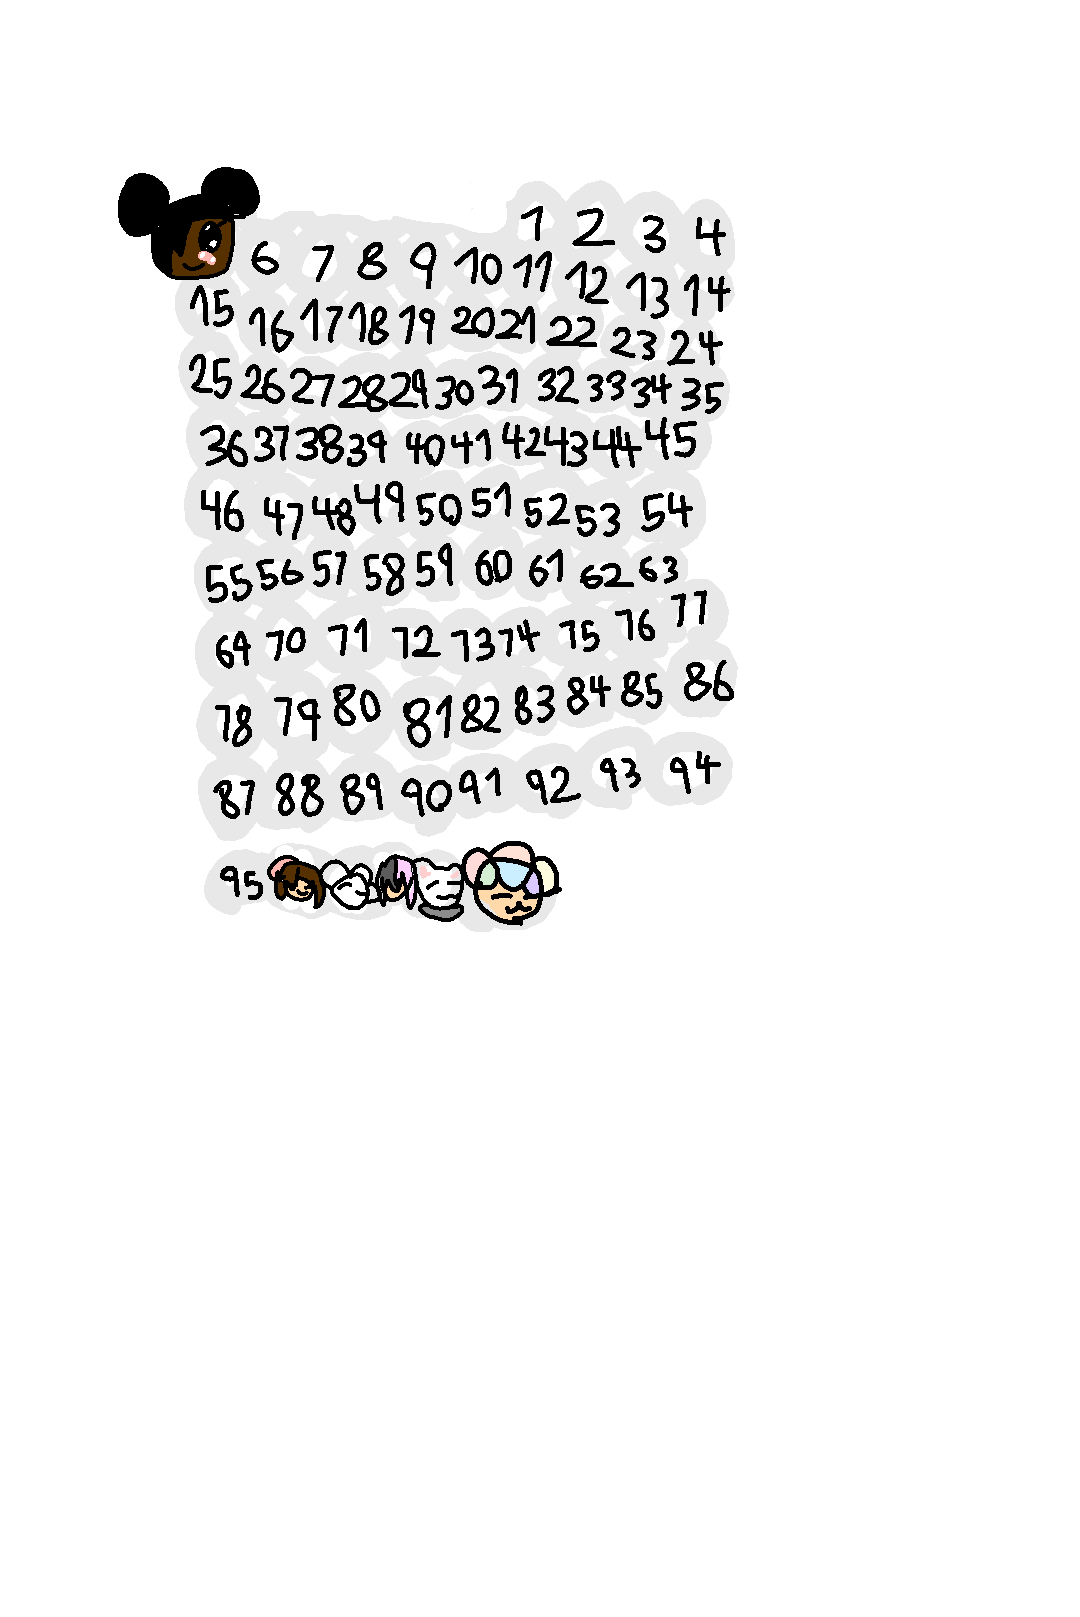 1 2 3 4
6 7 8 9 10 11 12 13 14
15 16 17 18 19 20 21 22 23 24
25 26 27 28 29 30 31 32 33 34 35
36 37 38 39 40 41 42 43 44 45
46 47 48 49 50 51 52 53 54
55 56 57 58 59 60 61 62 63
69 70 71 72 73 74 75 76 77
78 79 80 81 82 83 84 85 86
87 88 89 90 91 92 93 94
95